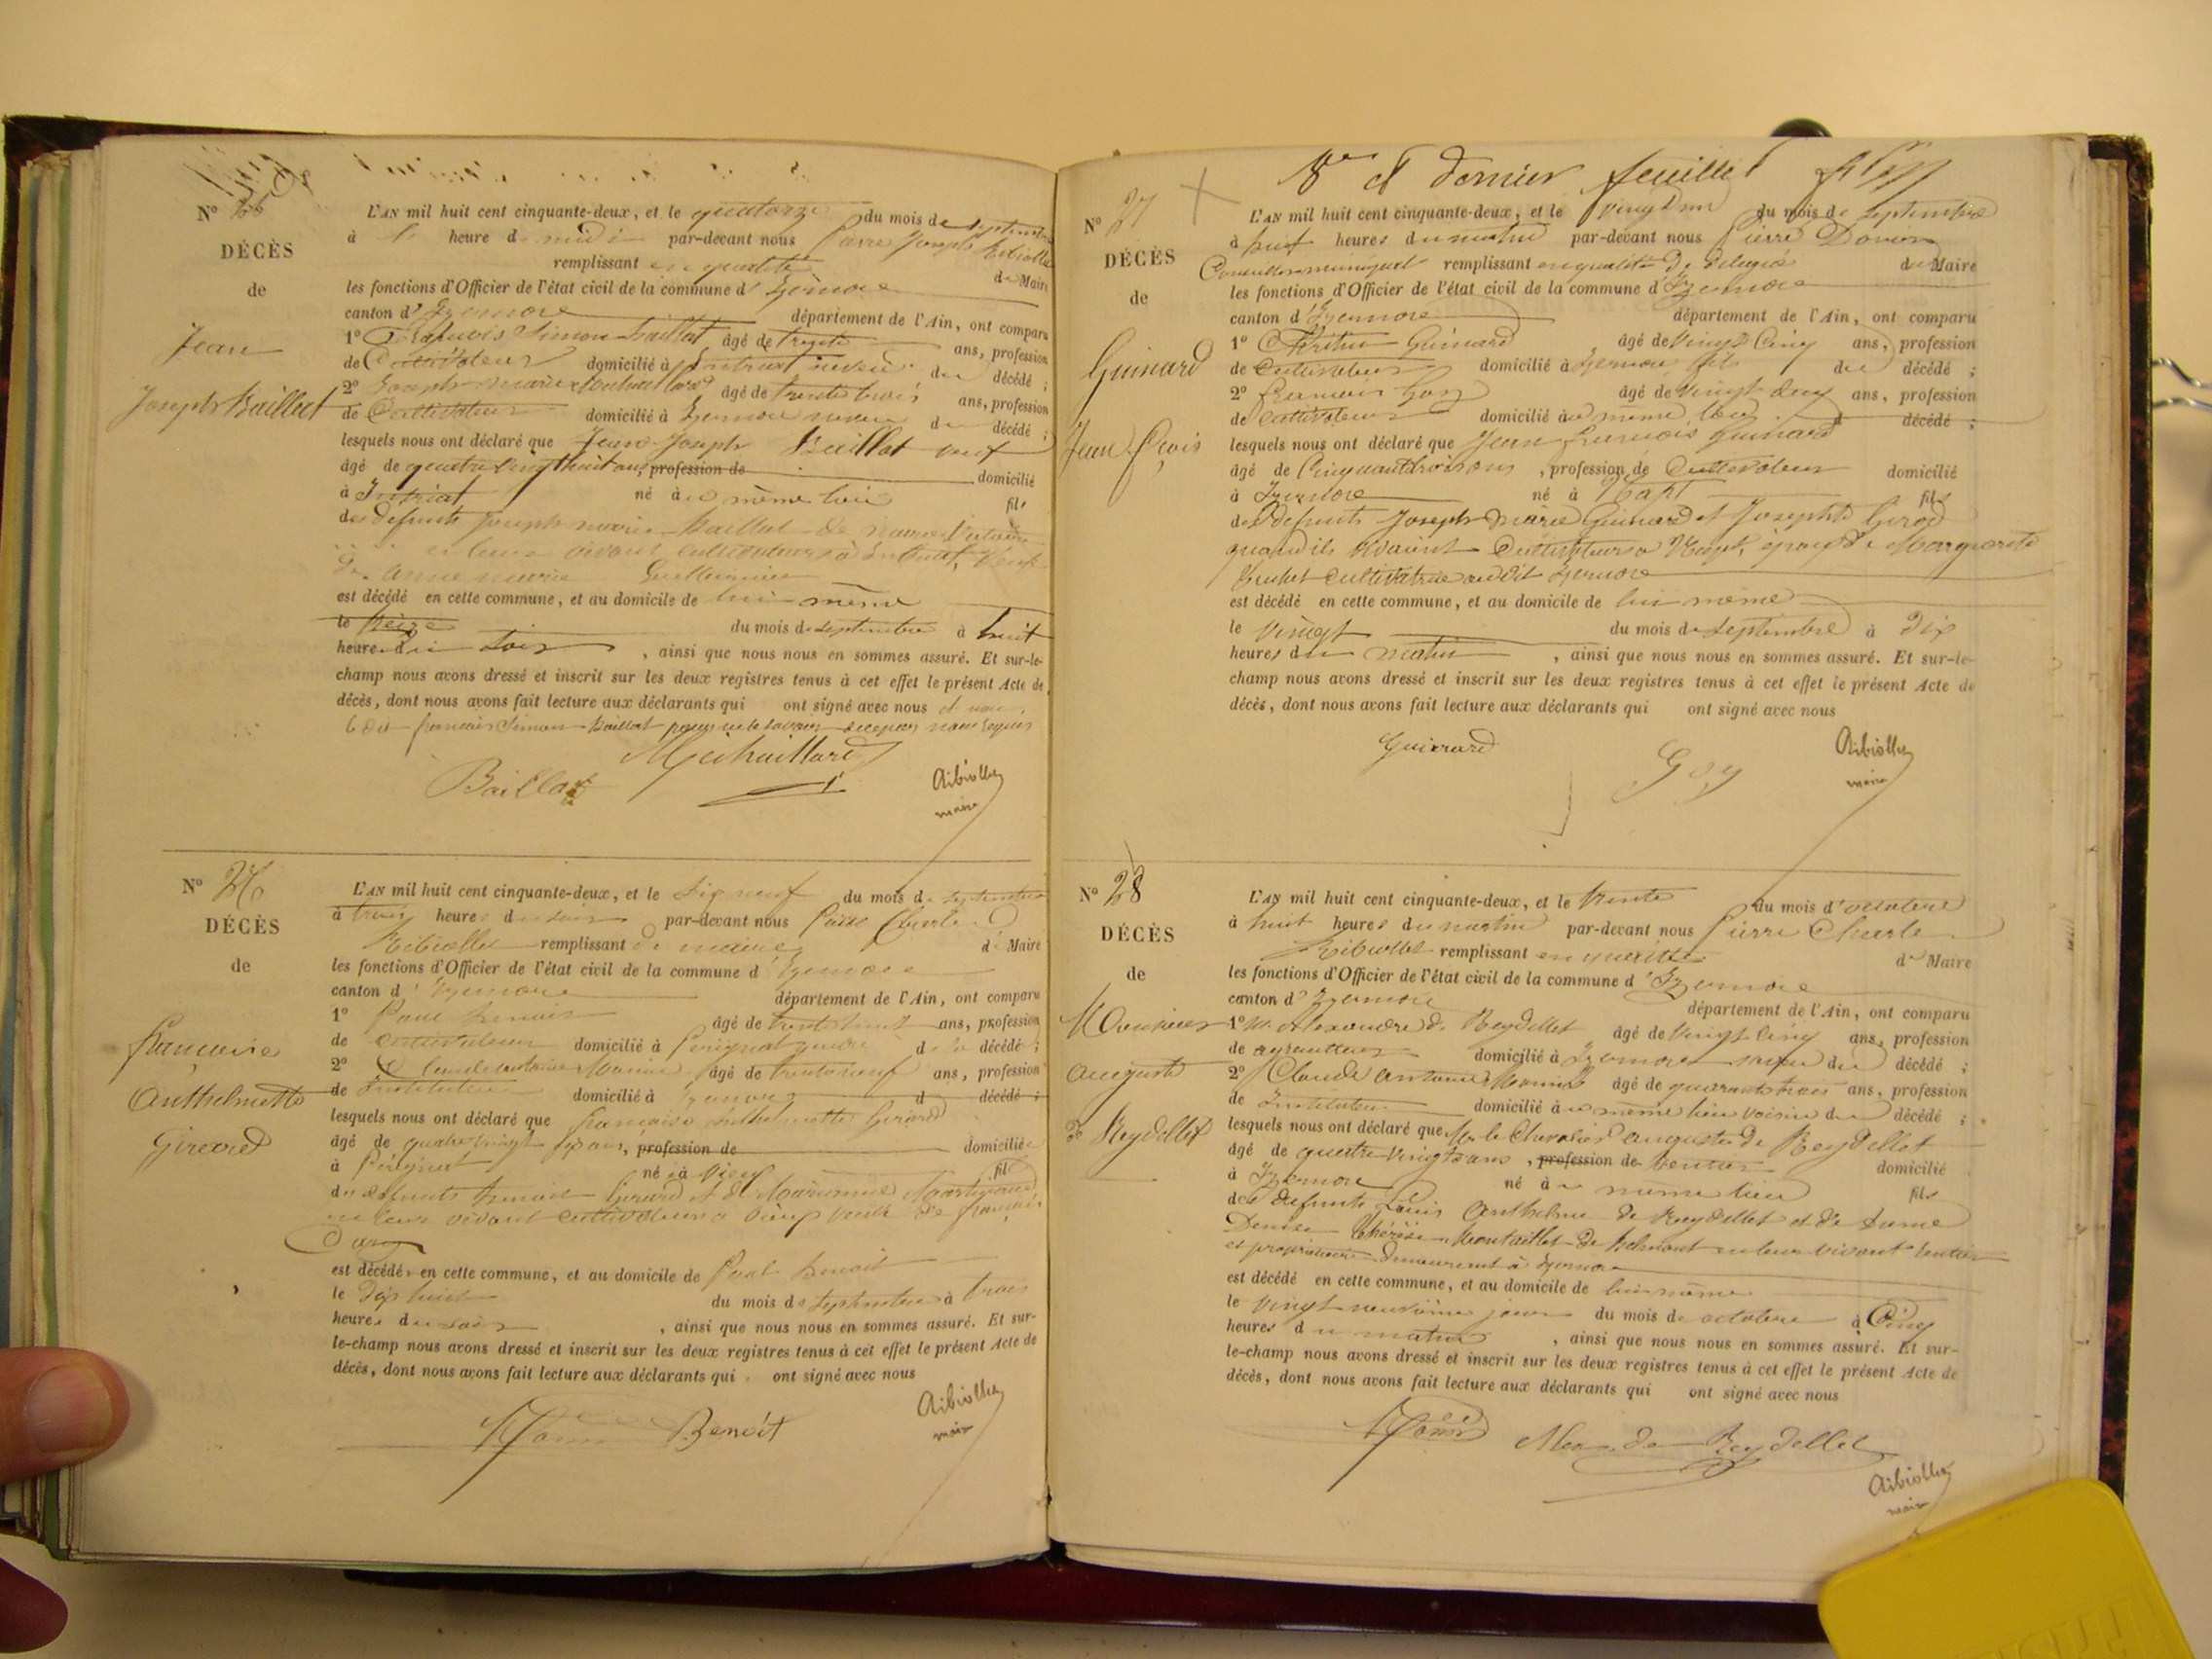 N° 
DÉCÈS
de
Jean
Joseph Baillat
L'AN mil huit cent cinquante-deux, et le quatorze du mois de septembre
à heure de midi par-devant nous Pierre
remplissant en qualité de Maire
les fonctions d'Officier de l'état civil de la commune d'Izernore
canton d'Izernore département de l'Ain, ont comparu
1° François Simon Baillat âgé de trente ans, profession
de Cultivateur domicilié à Intriat neveu du décédé ;
2° Joseph Marie âgé de trente trois ans, profession
de Cultivateur domicilié à Izernore du décédé ;
lesquels nous ont déclaré que Jean Joseph Baillat veuf
âgé de quatre vingt huit ans, profession de domicilié
à Intriat né à ce même lieu fils
des défunts Joseph marie Baillat de
en leur vivant cultivateurs à Intriat,
de anne marie
est décédé en cette commune, et au domicile de lui même
le treize du mois de septembre à huit
heures du soir , ainsi que nous nous en sommes assuré. Et sur-le-
champ nous avons dressé et inscrit sur les deux registres tenus à cet effet le présent Acte de
décès, dont nous avons fait lecture aux déclarants qui ont signé avec nous et non
le dit françois Simon Baillat pour ne le savoir de ce
Baillat
Aibiollet
maire
N° 26
DÉCÈS
de
françoise
Anthelmette
Girard
L'AN mil huit cent cinquante-deux, et le dix neuf du mois de septembre
à trois heures du soir par-devant nous Pierre Charle
Aibiollet remplissant de maire de Maire
les fonctions d'Officier de l'état civil de la commune d'Izernore
canton d'Izernore département de l'Ain, ont comparu
1° Paul benoit âgé de trente huit ans, profession
de cultivateur domicilié à Perignat gendre de la décédé ;
2° Claude antoine âgé de trente neuf ans, profession
de Instituteur domicilié à Izernore d décédé ;
lesquels nous ont déclaré que françoise anthelmette Girard
âgé de quatre vingt ans, profession de domiciliée
à Pérignat né à fil
des défunts benoit Girard et de Marianne
en leur vivant cultivateurs à veuve de françois
est décédée en cette commune, et au domicile de Paul benoit
le dix huit du mois de septembre à trois
heures du soir , ainsi que nous nous en sommes assuré. Et sur-
le-champ nous avons dressé et inscrit sur les deux registres tenus à cet effet le présent Acte de
décès, dont nous avons fait lecture aux déclarants qui ont signé avec nous
Benoit
Aibiollet
maire
8e et dernier feuillet
N° 27
DÉCÈS
de
Guinard
Jean fçois
L'AN mil huit cent cinquante-deux, et le vingt un du mois de septembre
à huit heures du matin par-devant nous Pierre
Conseiller municipal remplissant en qualité de délégué du Maire
les fonctions d'Officier de l'état civil de la commune d'Izernore
canton d'Izernore département de l'Ain, ont comparu
1° Guinard âgé de vingt Cinq ans, profession
de Cultivateur domicilié à Izernore fils du décédé ;
2° francois Goy âgé de vingt deux ans, profession
de Cultivateur domicilié à ce même lieu d décédé ;
lesquels nous ont déclaré que Jean francois Guinard
âgé de Cinquante trois ans , profession de Cultivateur domicilié
à Izernore né à Napt fils
des défunts Joseph Marie Guinard et Josephte Girod
quand ils vivaient Cultivateurs à Napt, époux de Marguerite
cultivatrice au dit Izernore
est décédé en cette commune, et au domicile de lui même
le vingt du mois de septembre à dix
heures du matin , ainsi que nous nous en sommes assuré. Et sur-le-
champ nous avons dressé et inscrit sur les deux registres tenus à cet effet le présent Acte de
décès, dont nous avons fait lecture aux déclarants qui ont signé avec nous
Guinard
Goy
Aibiollet
maire
N° 28
DÉCÈS
de
Monsieur
auguste
de Reydellet
L'AN mil huit cent cinquante-deux, et le trente du mois d'octobre
à huit heures du matin par-devant nous Pierre Charle
Aibiollet remplissant en qualité de Maire
les fonctions d'Officier de l'état civil de la commune d'Izernore
canton d'Izernore département de l'Ain, ont comparu
1° Mr. Alexandre de Reydellet âgé de vingt cinq ans, profession
de domicilié à Izernore neveu du décédé ;
2° Claude antoine âgé de quarante trois ans, profession
de Instituteur domicilié à ce même lieu voisin du décédé ;
lesquels nous ont déclaré que Mr. le Chevalier auguste de Reydellet
âgé de quatre vingts ans , profession de rentier domicilié
à Izernore né à ce même lieu fils
des défunts Louis Anthelme de Reydellet et de Dame
Denise Thérèse Montaillet de Belmont en leur vivant rentier
et propriétaire demeurant à Izernore
est décédé en cette commune, et au domicile de lui même
le vingt neuvième jour du mois de octobre à Cinq
heures du matin , ainsi que nous nous en sommes assuré. Et sur-
le-champ nous avons dressé et inscrit sur les deux registres tenus à cet effet le présent Acte de
décès, dont nous avons fait lecture aux déclarants qui ont signé avec nous
Alex de Reydellet
Aibiollet
maire